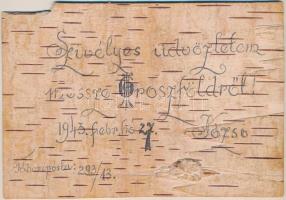 Szivélyes üdvözletem
messze Oroszföldről!
1943. febr. hó 27. Józsó
Tábori posta: 293/43.